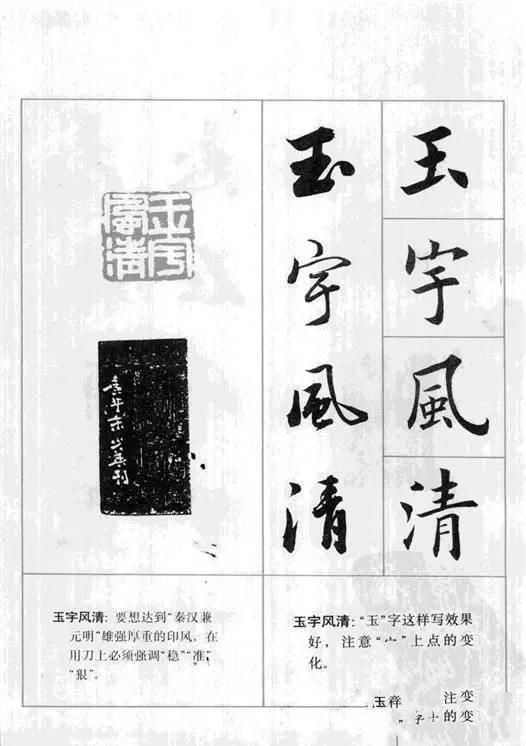 玉宇風清
玉宇風清
玉宇風清
玉宇风清:“玉”字这样写效果
好，注意“宀”上点的变
化。
玉宇风清:要想达到“秦汉兼
元明”雄强厚重的印风，在
用刀上必须强调“稳”“准”，
“狠”。
注 变
的变